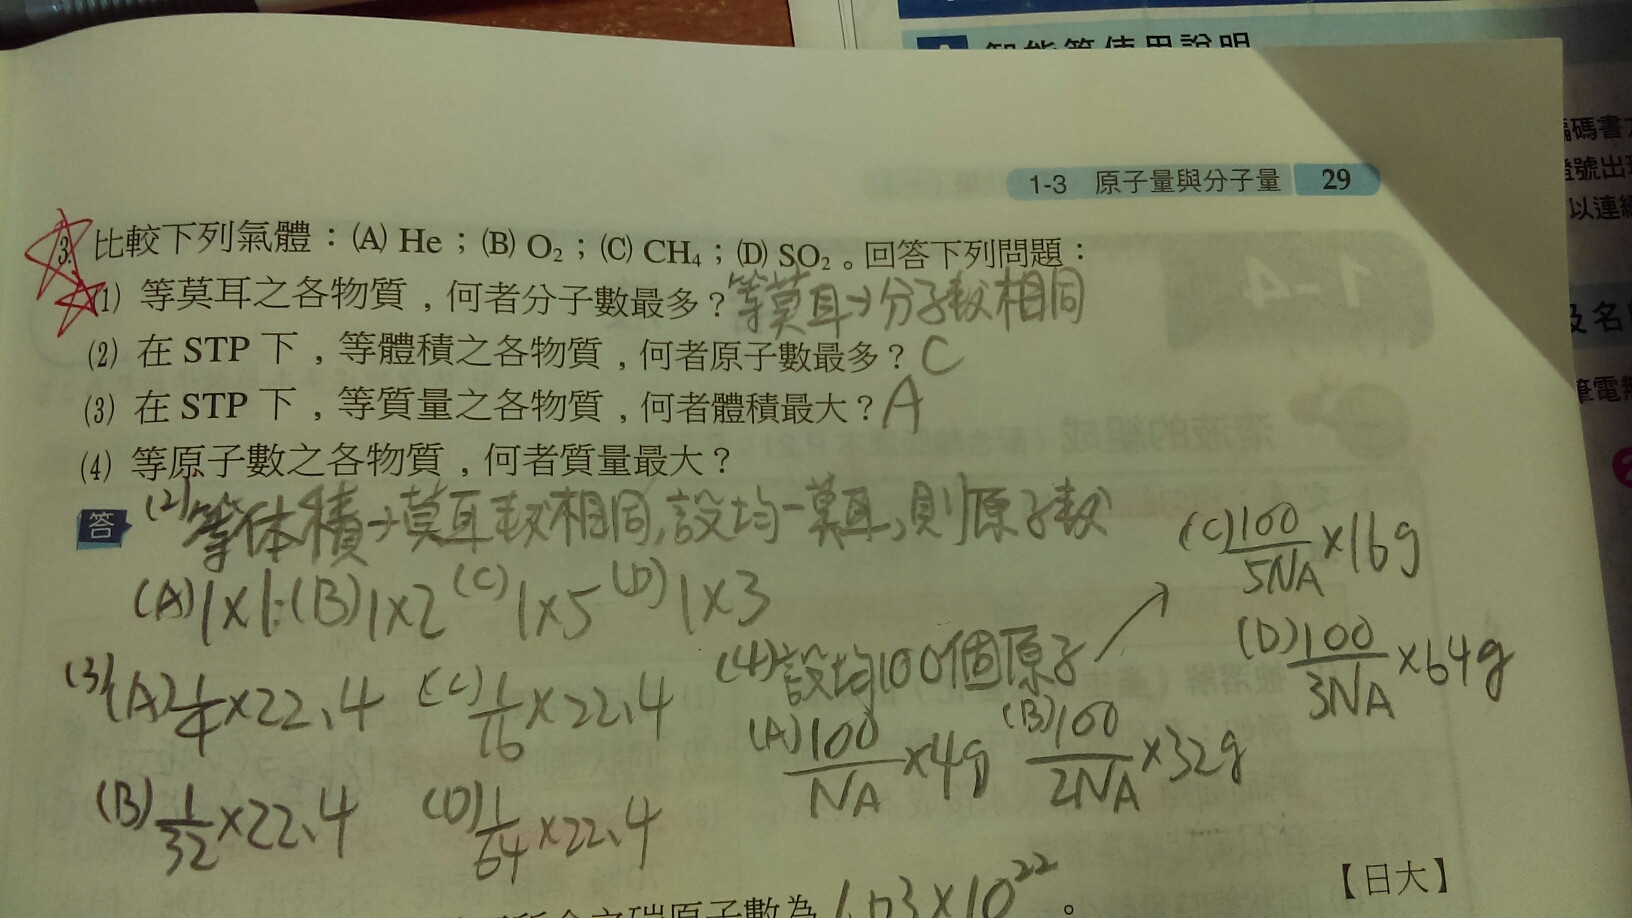 智能筆使用說明
1-3 原子量與分子量 29
3. 比較下列氣體：(A) He；(B) O₂；(C) CH₄；(D) SO₂。回答下列問題：
(1) 等莫耳之各物質，何者分子數最多？等莫耳→分子數相同
(2) 在 STP 下，等體積之各物質，何者原子數最多？C
(3) 在 STP 下，等質量之各物質，何者體積最大？A
(4) 等原子數之各物質，何者質量最大？
答 (2) 等体積→莫耳数相同，設均一莫耳，則原子数
(A) 1×1 (B) 1×2 (C) 1×5 (D) 1×3
(3) (A) 1/4 ×22.4 (C) 1/16 ×22.4
(B) 1/32 ×22.4 (D) 1/64 ×22.4
(4) 設均100個原子
(A) 100/NA ×4g (B) 100/2NA ×32g
(C) 100/5NA ×16g
(D) 100/3NA ×64g
【日大】
之碳原子數為 1.03×10²² 。